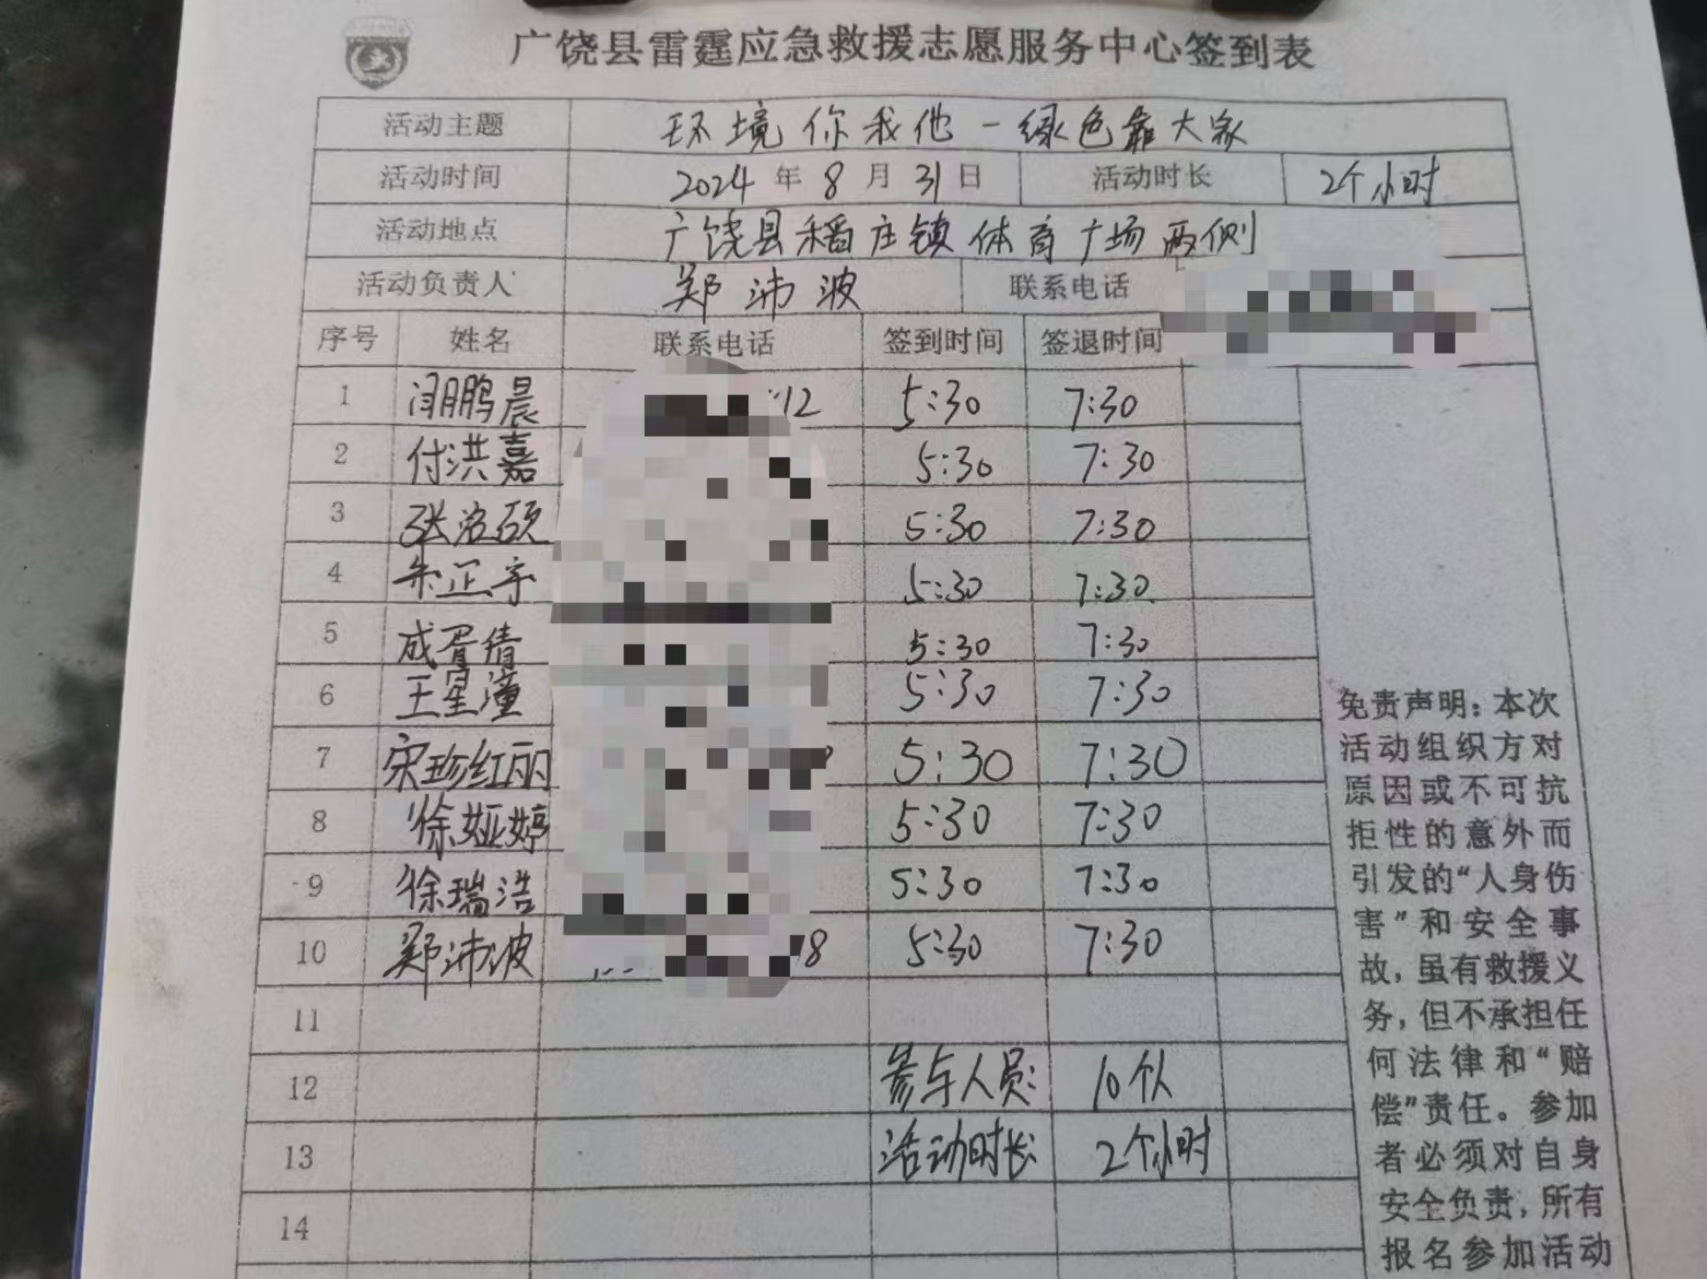 广饶县雷霆应急救援志愿服务中心签到表
活动主题 环境你我他一绿色靠大家
活动时间 2024年8月31日 活动时长 2个小时
活动地点 广饶县稻庄镇体育广场两侧
活动负责人 郑沛波 联系电话
序号 姓名 联系电话 签到时间 签退时间
1 闫鹏晨 12 5:30 7:30
2 付洪嘉 5:30 7:30
3 张洛硕 5:30 7:30
4 朱正宇 5:30 7:30
5 成胥倩 5:30 7:30
6 王星潼 5:30 7:30
7 宋珍红丽 5:30 7:30
8 徐娅婷 5:30 7:30
9 徐瑞浩 5:30 7:30
10 郑沛波 18 5:30 7:30
11
12 参与人员: 10个人
13 活动时长 2个小时
14
免责声明：本次
活动组织方对
原因或不可抗
拒性的意外而
引发的“人身伤
害”和安全事
故，虽有救援义
务，但不承担任
何法律和“赔
偿”责任。参加
者必须对自身
安全负责，所有
报名参加活动